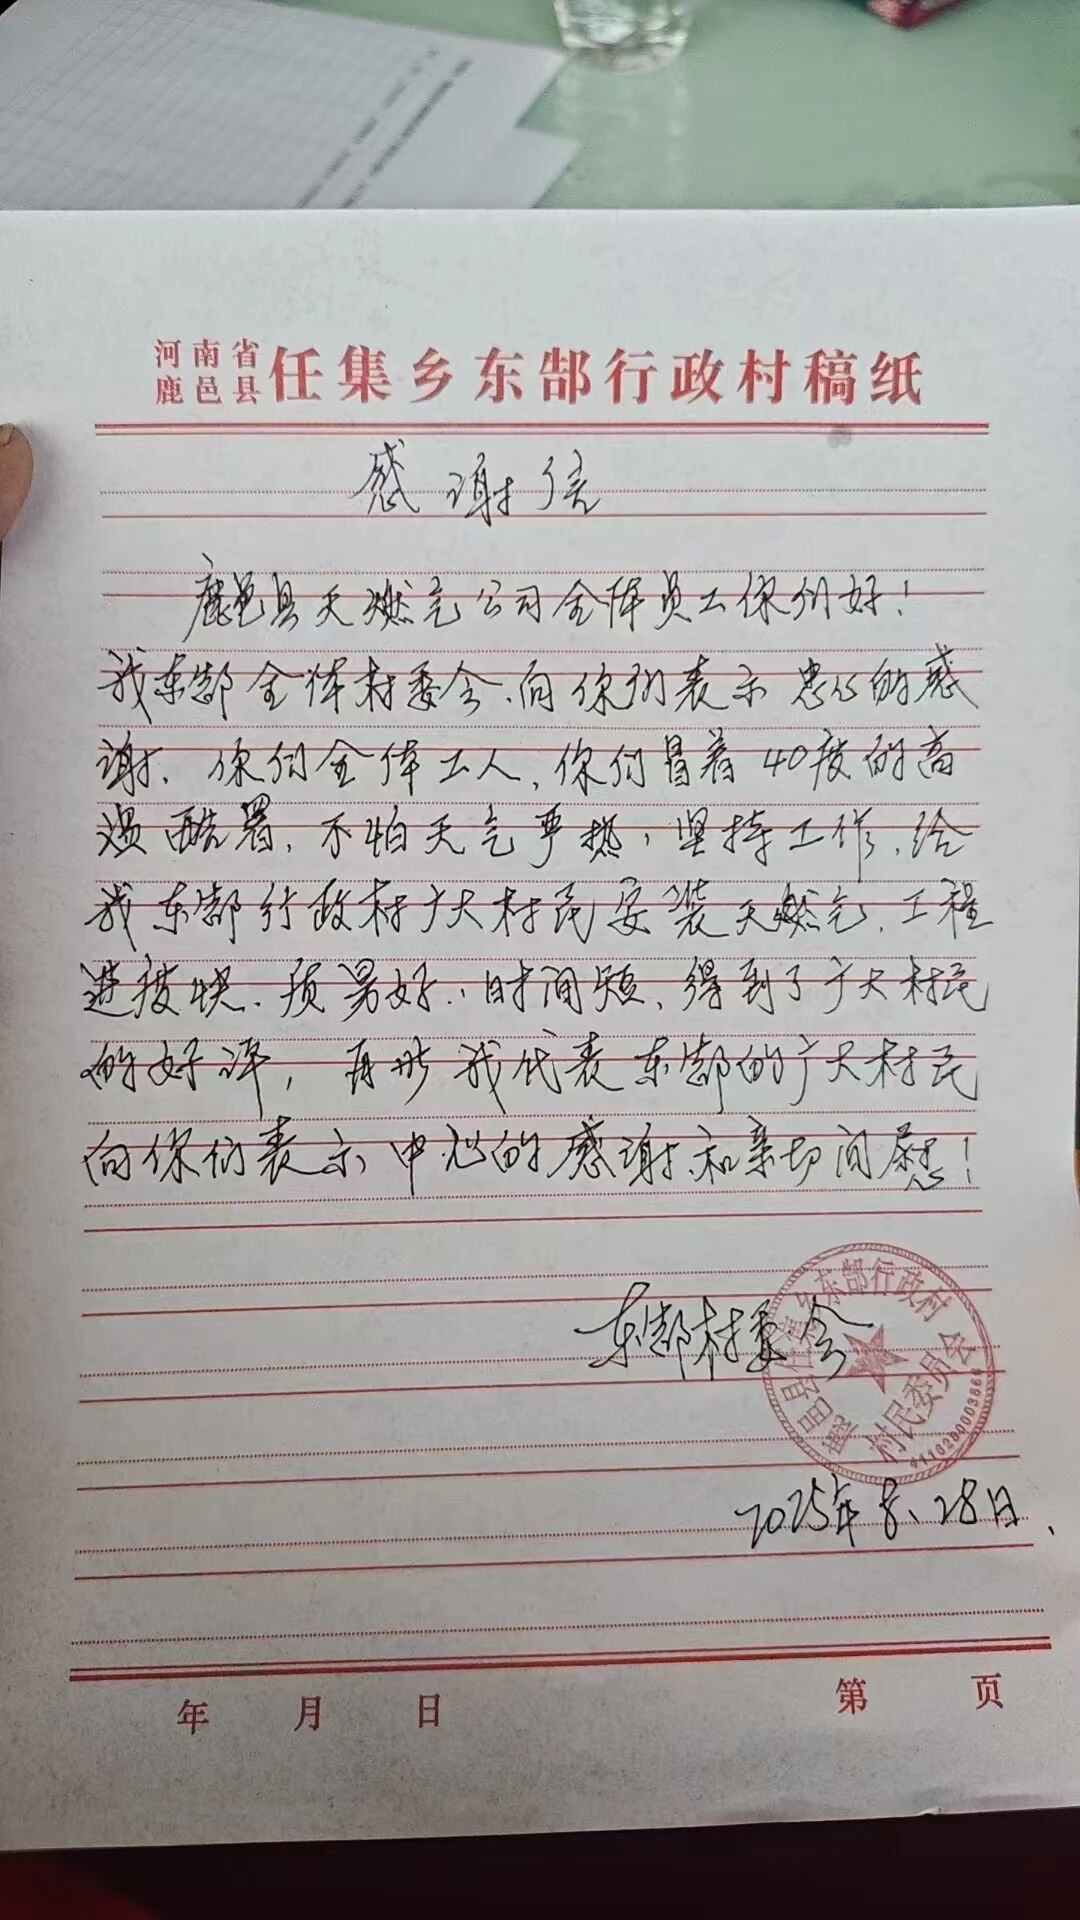 河南省
鹿邑县
任集乡东郜行政村稿纸
感谢信
鹿邑县天燃气公司全体员工你们好！
我东郜全体村委会、向你们表示忠心的感
谢。你们全体工人，你们冒着40度的高
温酷署，不怕天气严热，坚持工作，给
我东郜行政村广大村民安装天燃气，工程
进度快、质量好、时间短，得到了广大村民
的好评，再此我代表东郜的广大村民
向你们表示中心的感谢和亲切问慰！
东郜村委会
鹿邑县任集乡东郜行政村
村民委员会
2025年8、28日
年 月 日
第 页